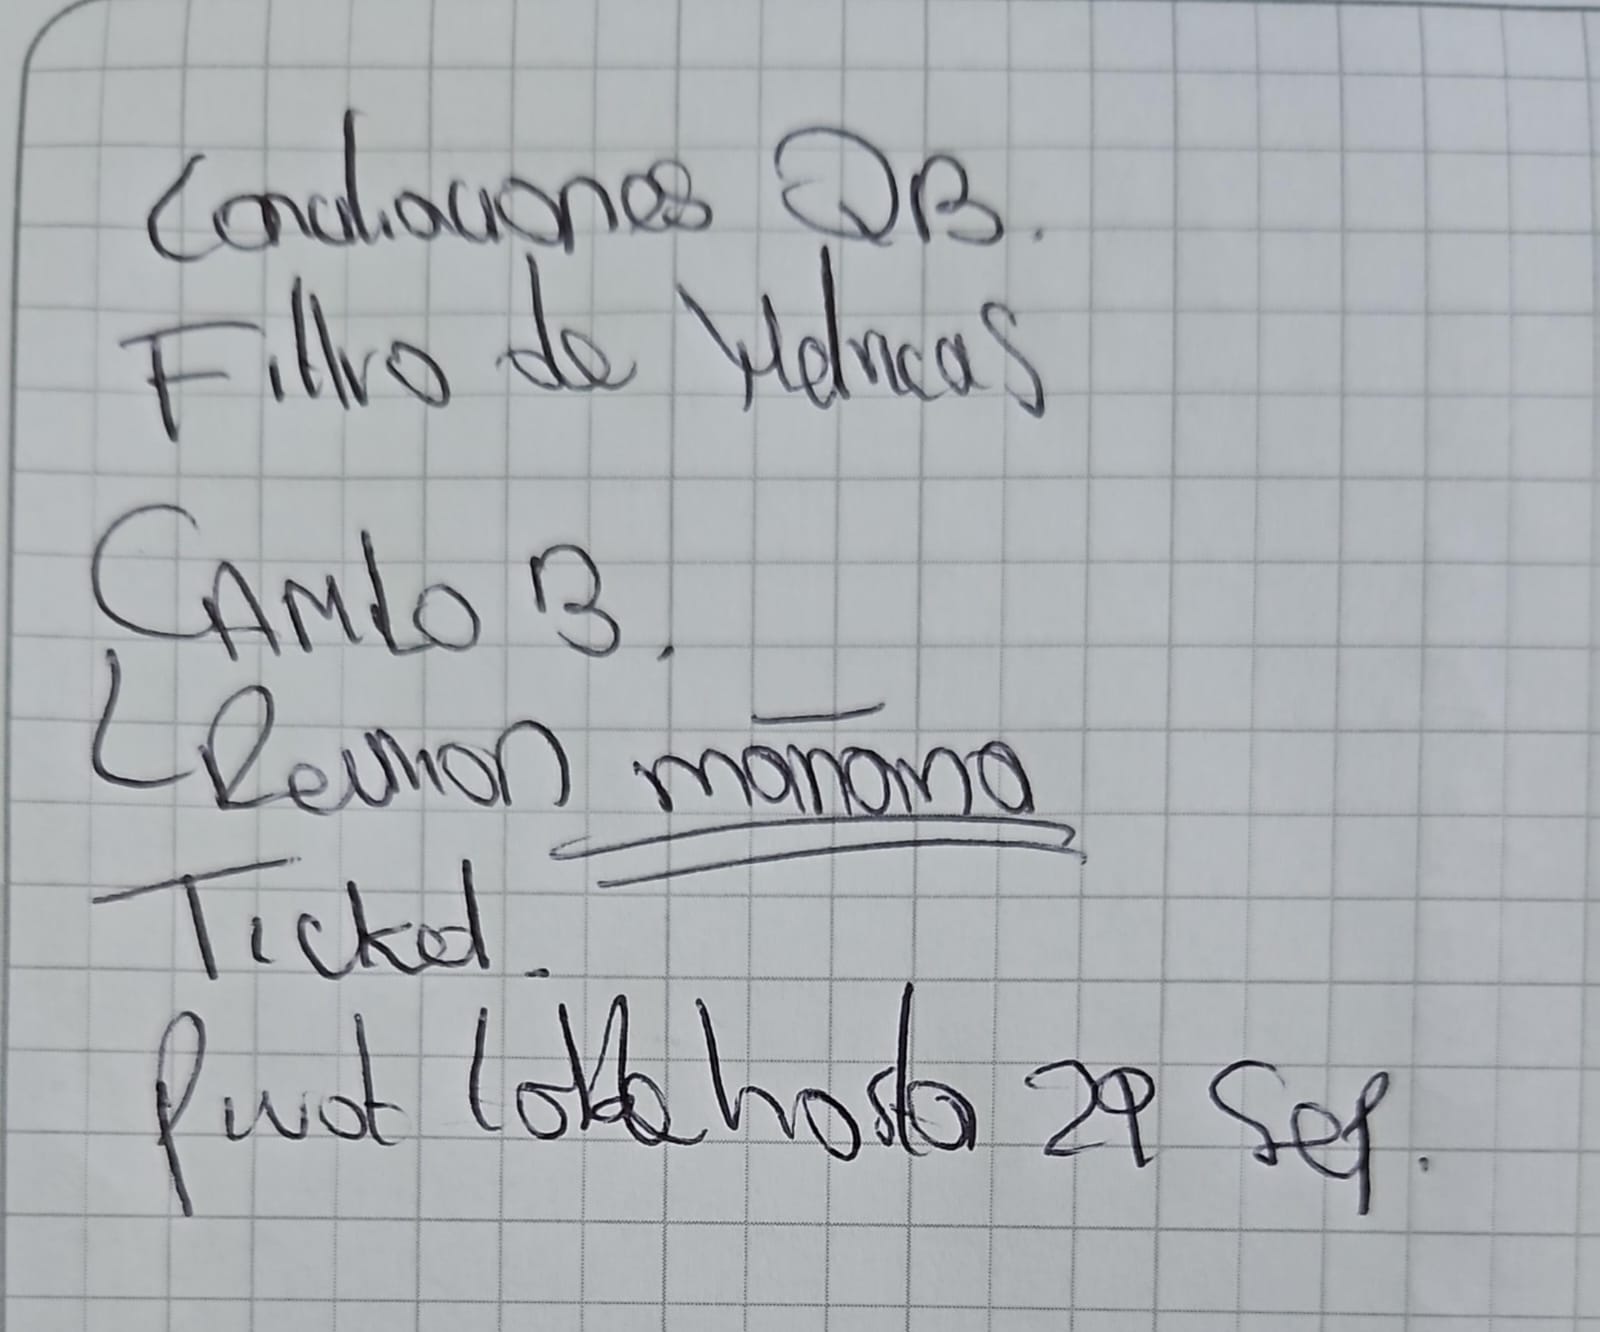 Conciliaciones QB.
Filtro de Metricas
CAMILO B.
Reunion mañana
Ticket.
Pivot hasta 29 Sep.